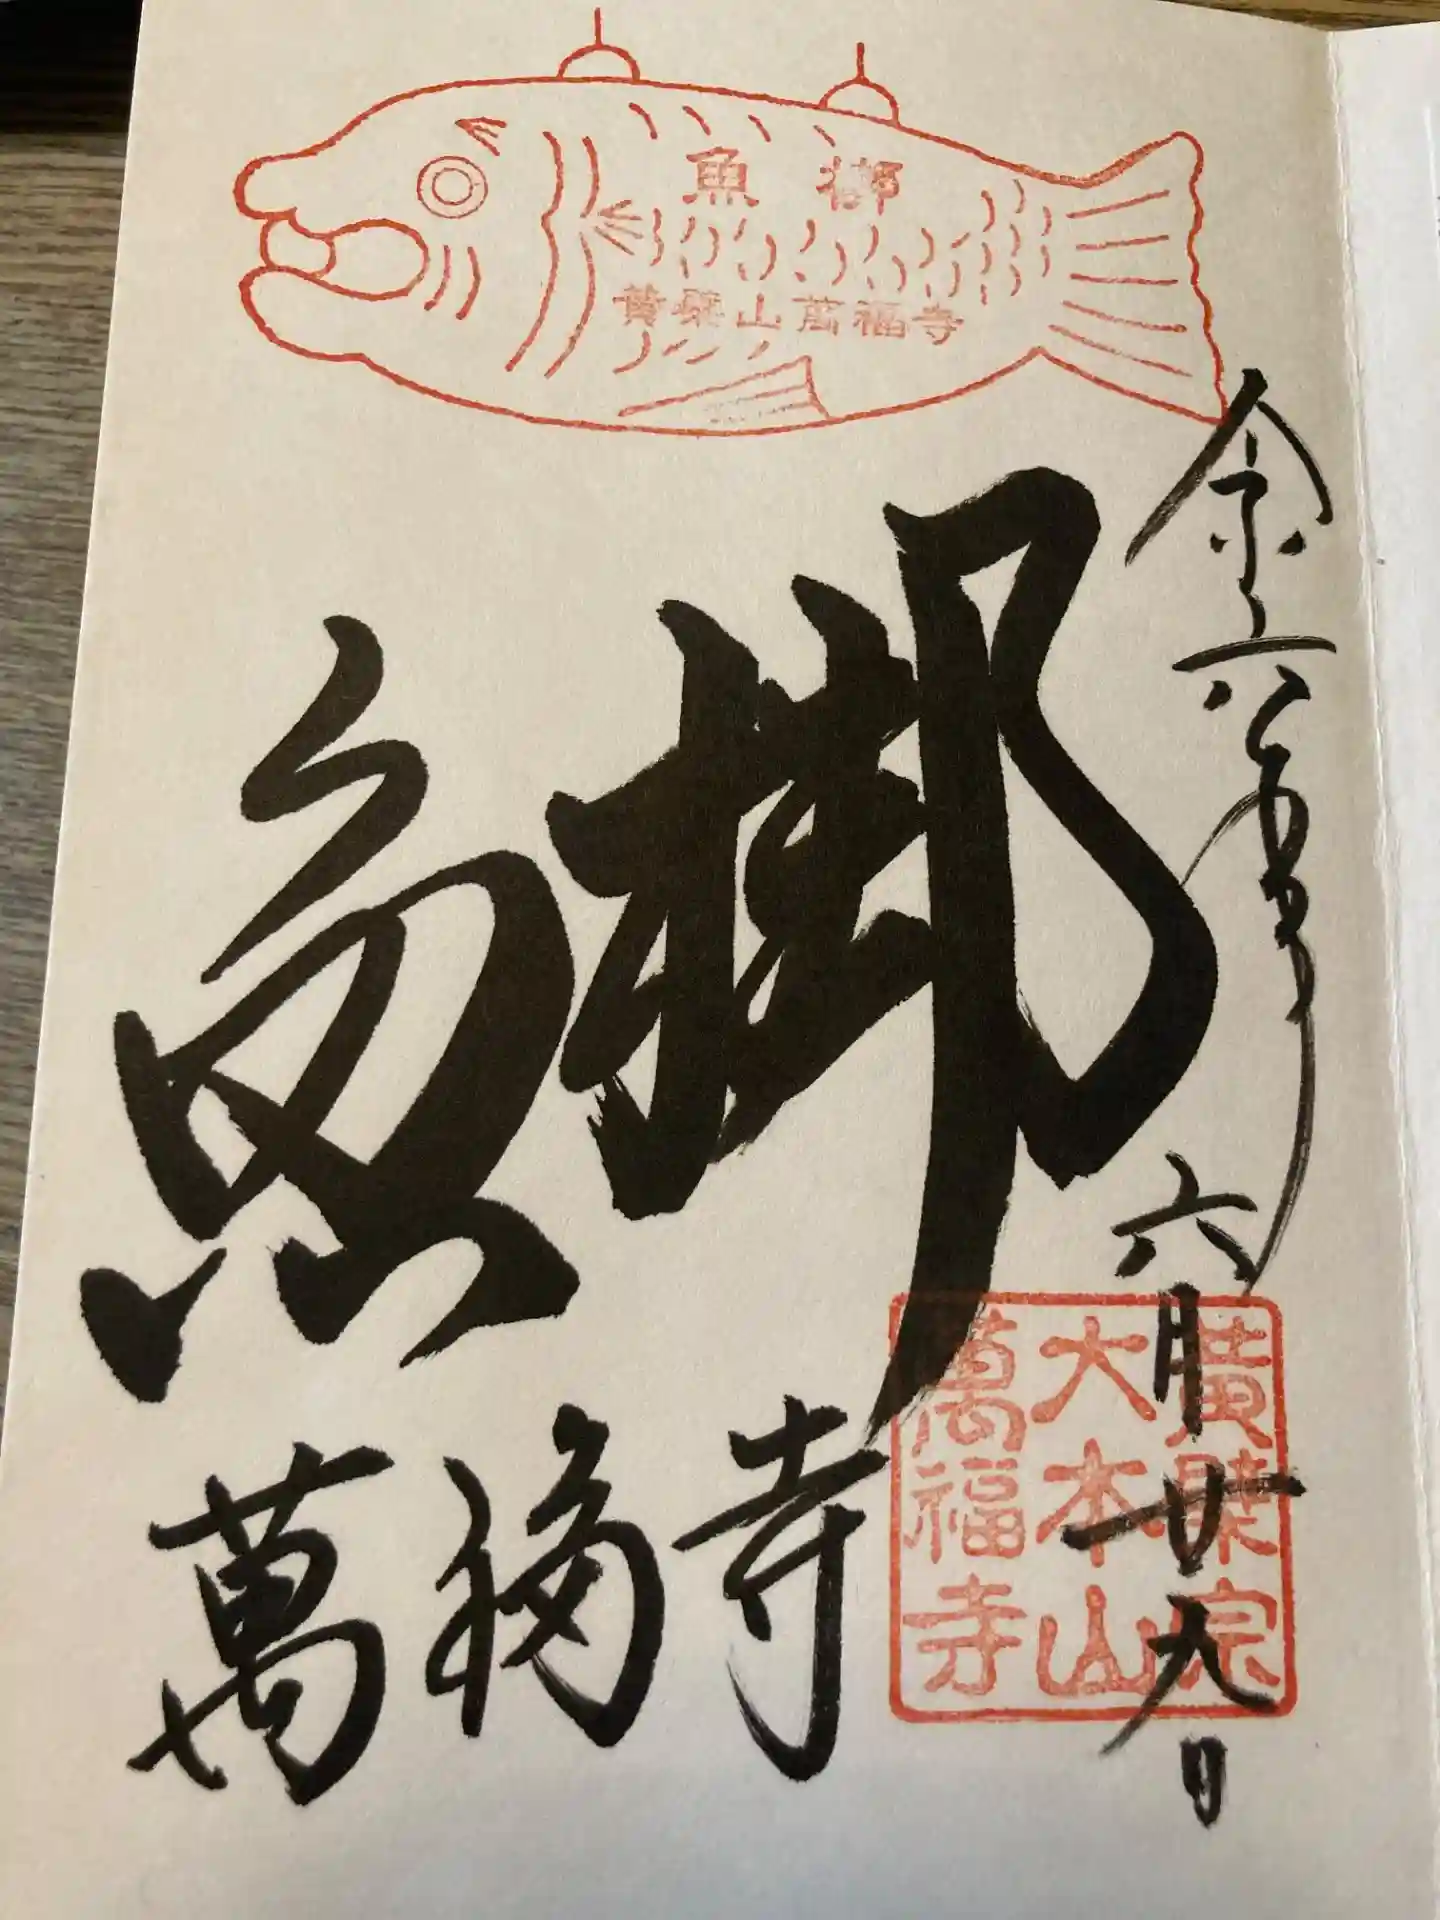 魚梆
黄檗山萬福寺
令六年六月廿九日
魚梆
萬福寺
黄檗宗
大本山
萬福寺